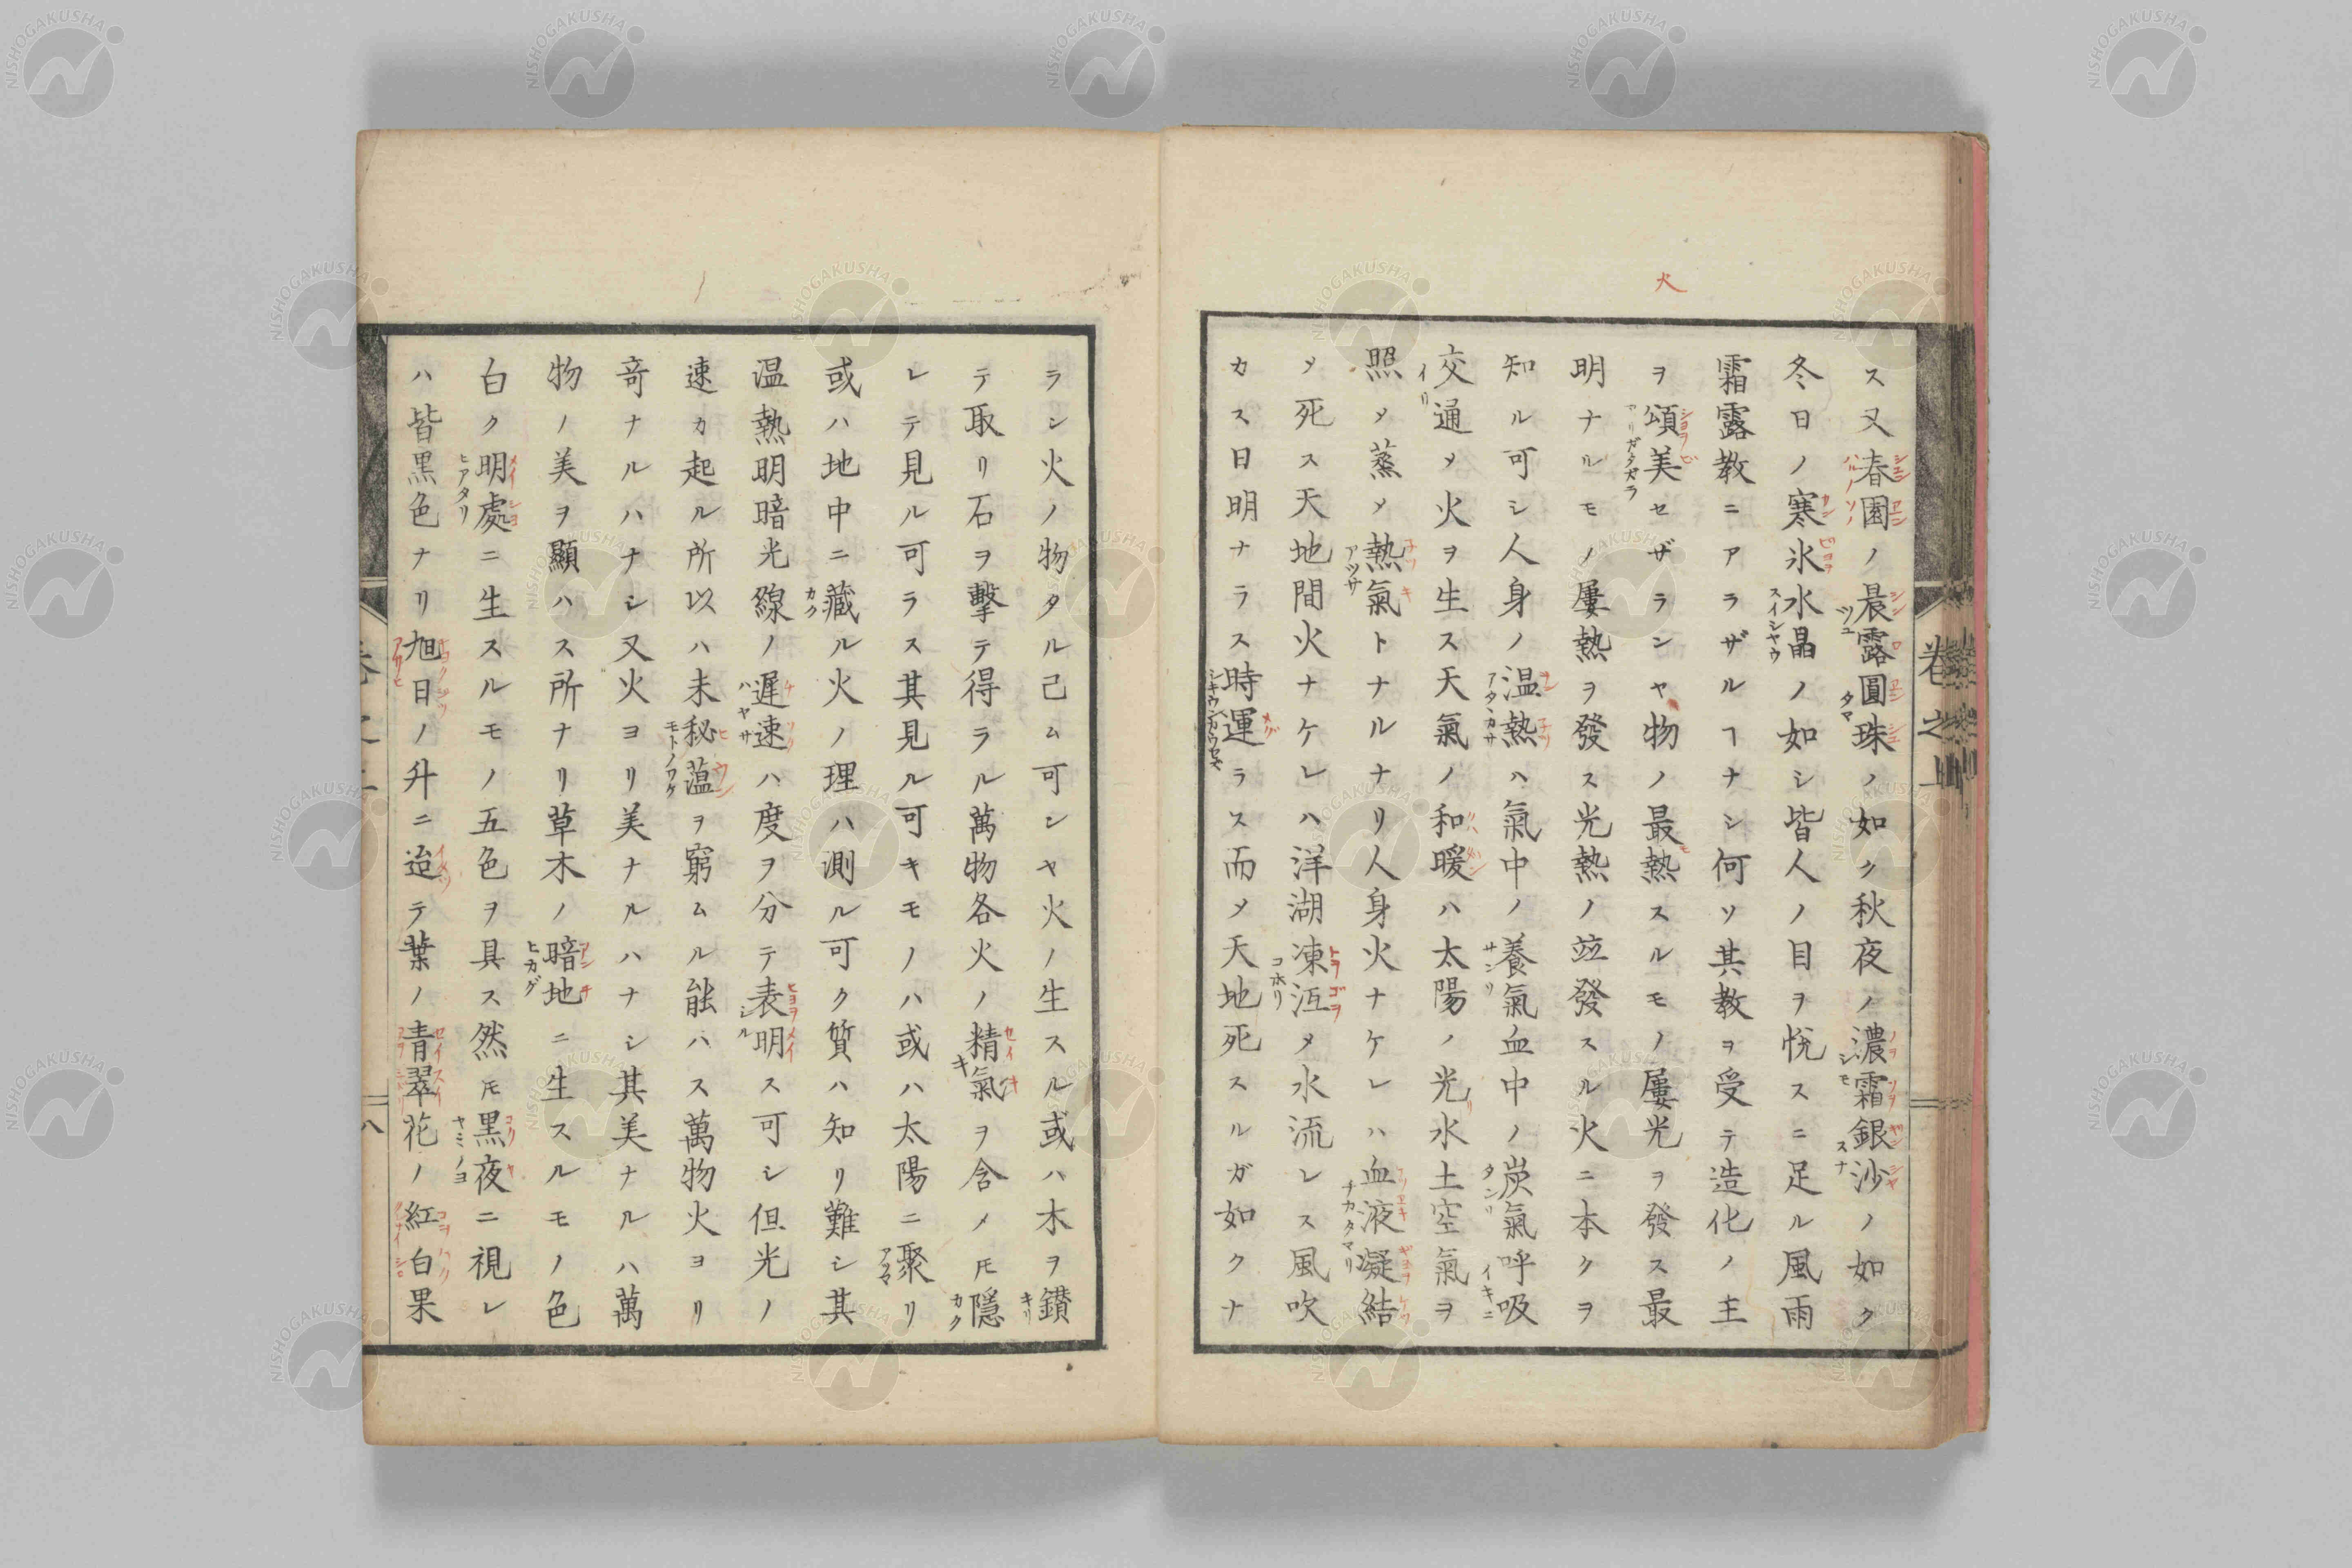 火
ス又春園ノ晨露圓珠ノ如ク秋夜ノ濃霜銀沙ノ如ク
冬日ノ寒氷水晶ノ如シ皆人ノ目ヲ悅スニ足ル風雨
霜露教ニアラザルヿナシ何ソ其教ヲ受テ造化ノ主
ヲ頌美セザランヤ物ノ最熱スルモノ屢光ヲ發ス最
明ナルモノ屢熱ヲ發ス光熱ノ竝發スル火ニ本クヲ
知ル可シ人身ノ温熱ハ氣中ノ養氣血中ノ炭氣呼吸
交通メ火ヲ生ス天氣ノ和暖ハ太陽ノ光水土空氣ヲ
照メ蒸メ熱氣トナルナリ人身火ナケレハ血液凝結
メ死ス天地間火ナケレハ洋湖凍沍メ水流レス風吹
カス日明ナラス時運ラス而メ天地死スルガ如クナ
巻之上
ラン火ノ物タル己ム可シヤ火ノ生スル或ハ木ヲ鑚
テ取リ石ヲ擊テ得ラル萬物各火ノ精氣ヲ含メ𪜈隱
レテ見ル可ラス其見ル可キモノハ或ハ太陽ニ聚リ
或ハ地中ニ藏ル火ノ理ハ測ル可ク質ハ知リ難シ其
温熱明暗光線ノ遲速ハ度ヲ分テ表明ス可シ但光ノ
速カ起ル所以ハ未秘薀ヲ窮ムル能ハス萬物火ヨリ
竒ナルハナシ又火ヨリ美ナルハナシ其美ナルハ萬
物ノ美ヲ顯ハス所ナリ草木ノ暗地ニ生スルモノ色
白ク明處ニ生スルモノ五色ヲ具ス然𪜈黒夜ニ視レ
ハ皆黒色ナリ旭日ノ升ニ迨テ葉ノ青翠花ノ紅白果
八
NISHOGAKUSHA